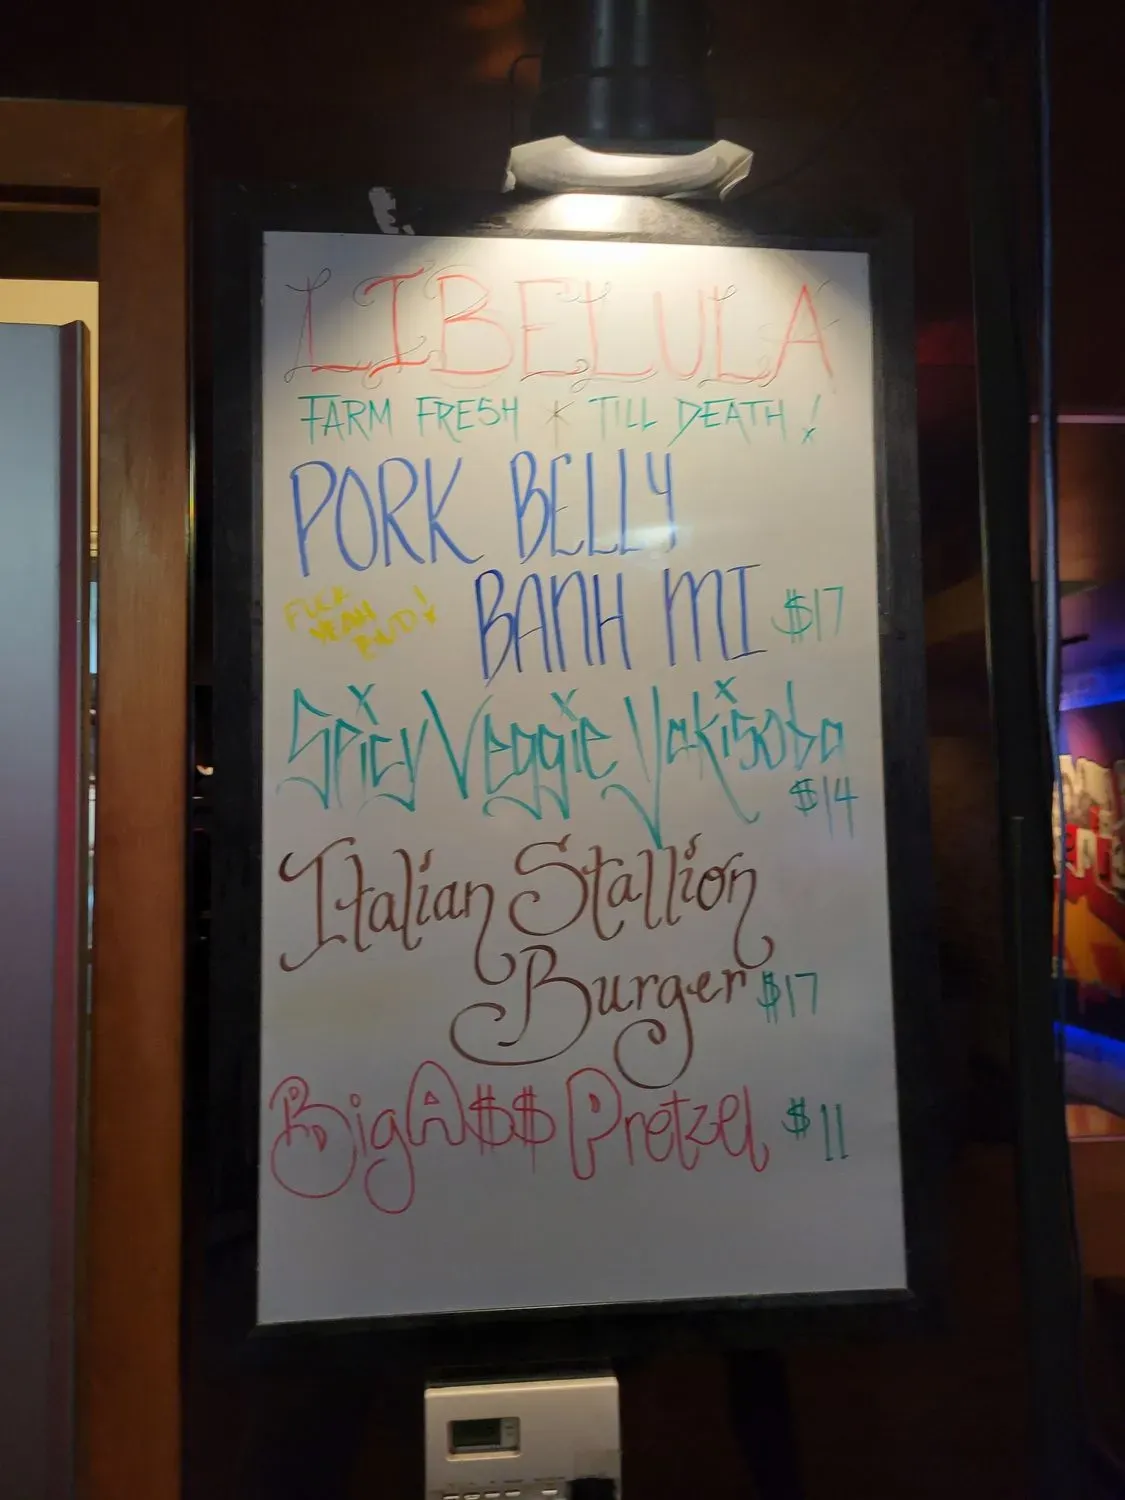 LIBELULA
FARM FRESH * TILL DEATH!
PORK BELLY
FUCK
YEAH
BUD!
BANH MI $17
Spicy Veggie Yakisoba
$14
Italian Stallion
Burger $17
Big A$$ Pretzel $11